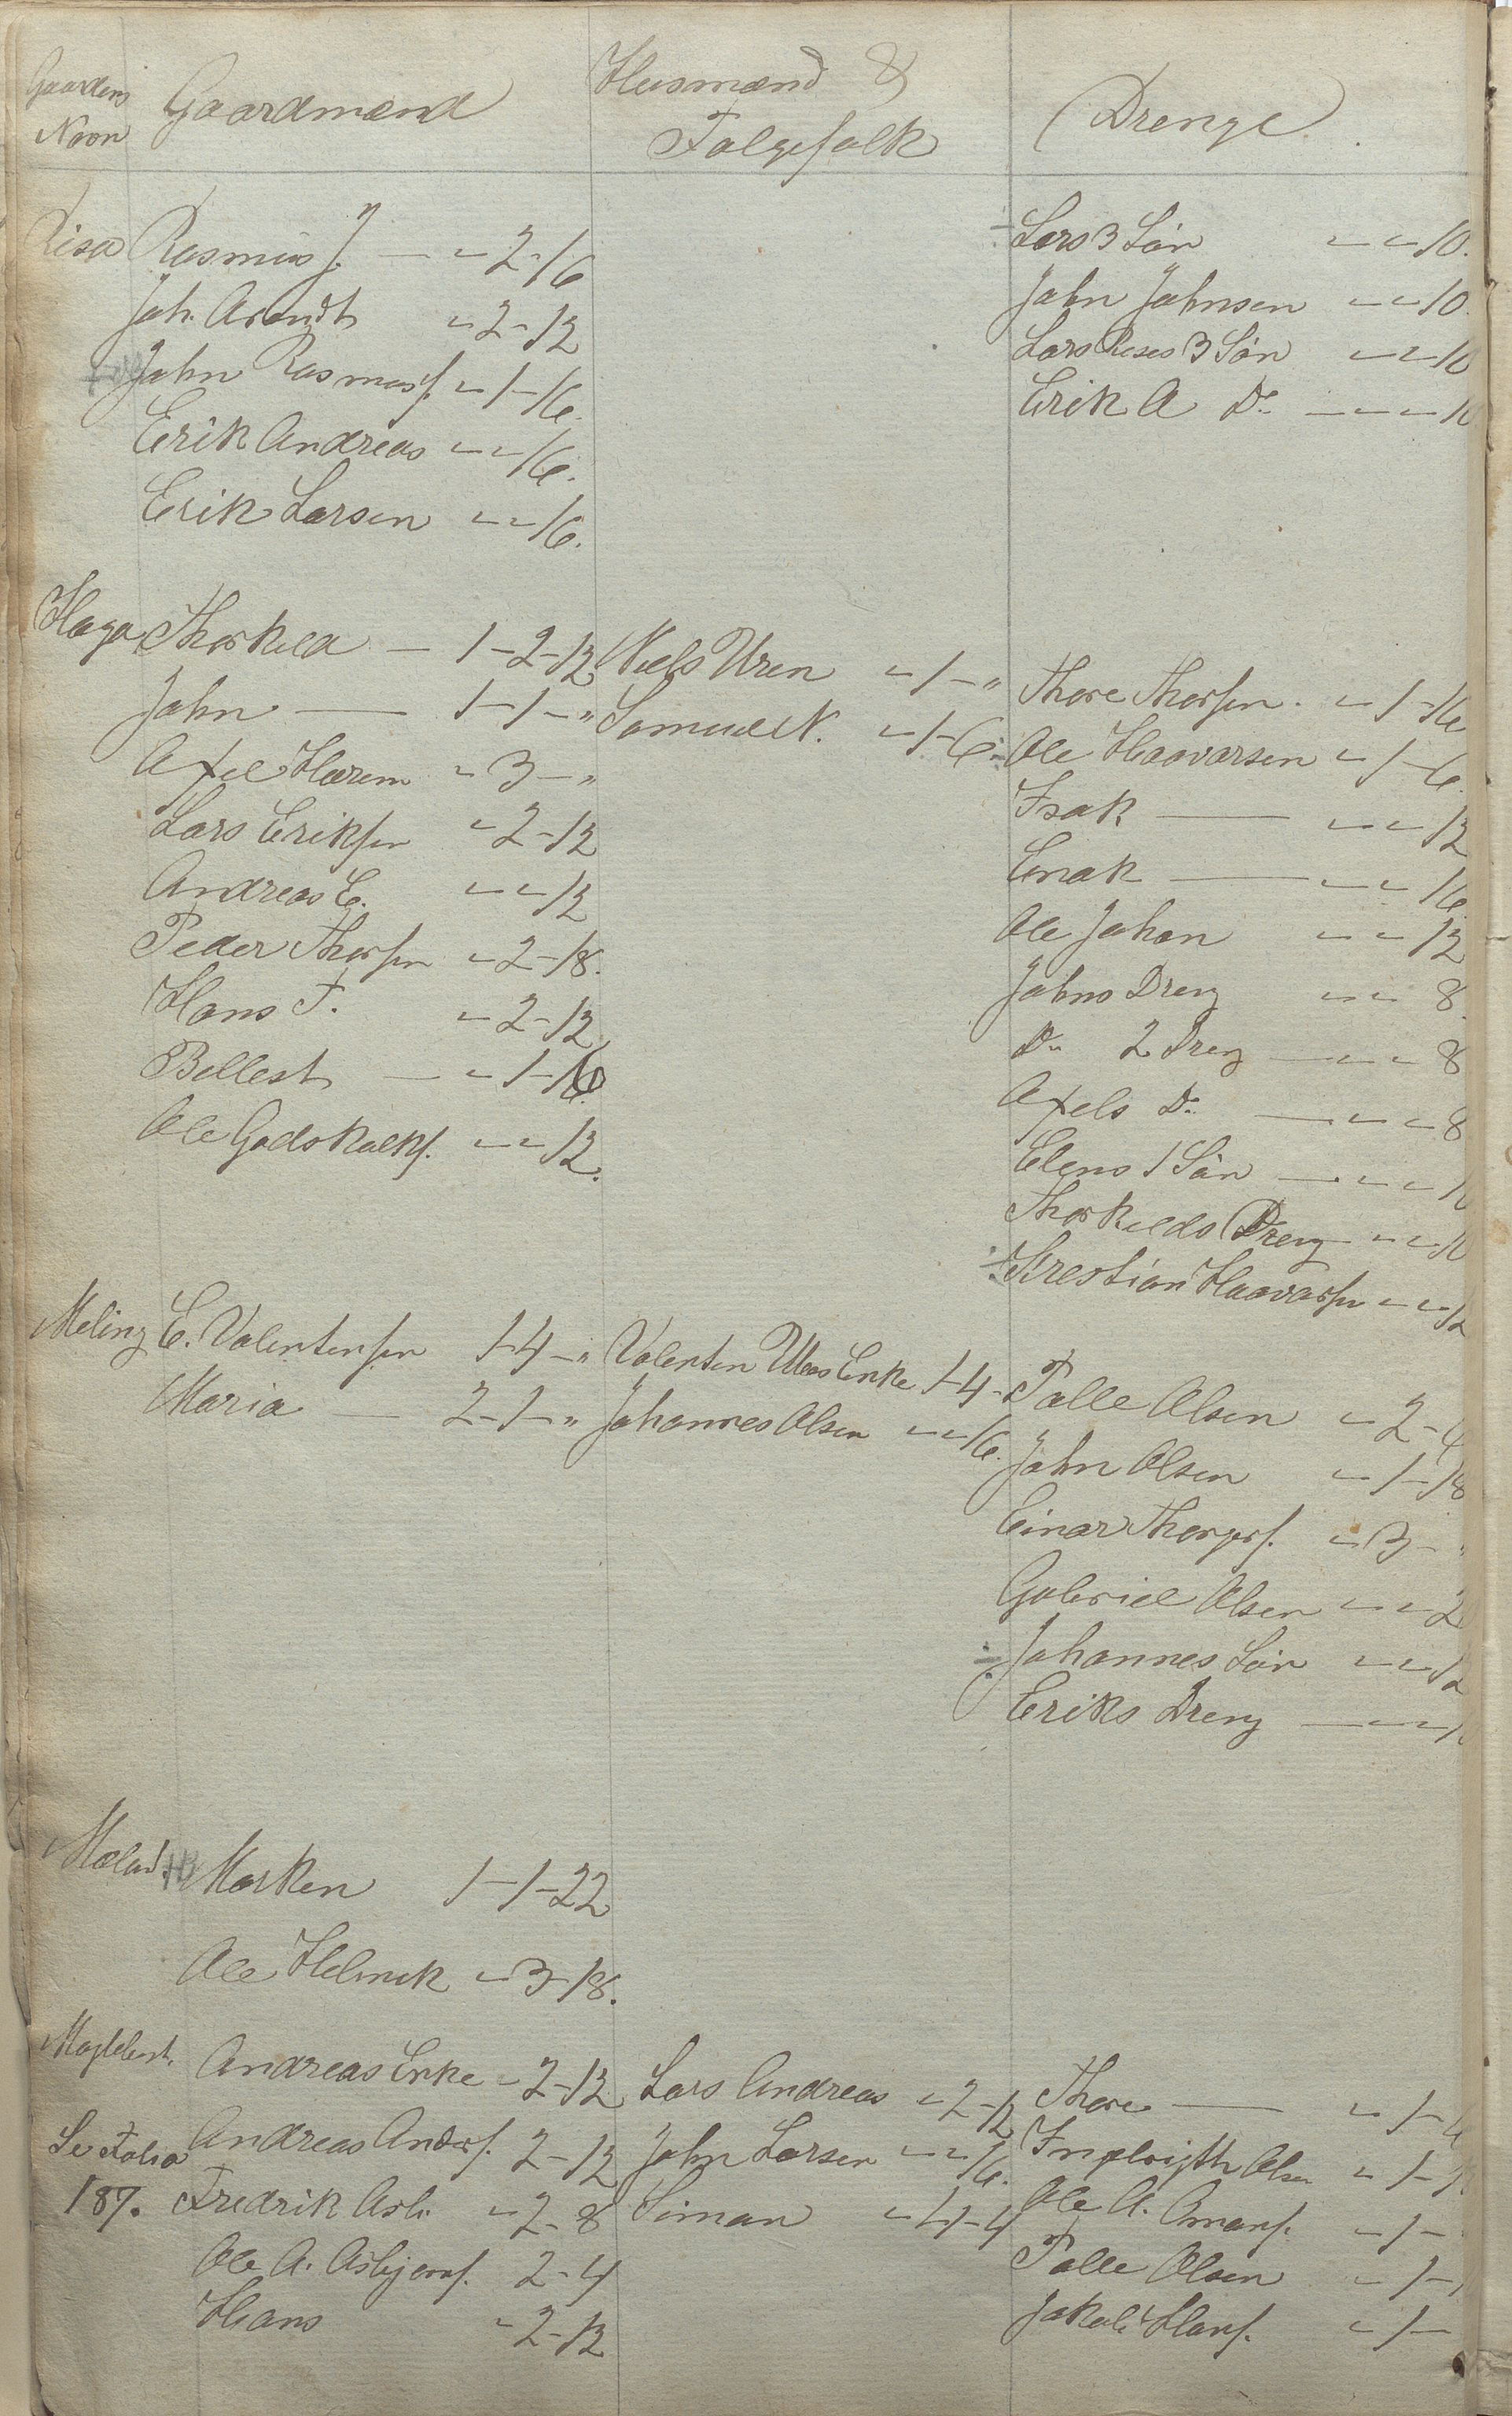 Gaardens
Navn
Gaardmænd
Husmænd &
Følgefolk
Drenge
Risa Rasmus J. — " 2 - 16
Joh. Arendt " 2 - 12
John Rasmusf. " 1 - 16.
Erik Andreas " " 16.
Erik Larsen " " 16.
÷ Lars 3 Sön " " 10.
John Johnsen " " 10.
Lars Reses 3 Sön " " 10
Erik A Do — " " 10
Haga Thorkild — 1 - 2 - 12
John — 1 - 1 - "
Axel Hærem " 3 - "
Lars Eriksen " 2 - 12
Andreas E. " " 12
Peder Thorsen " 2 - 18.
Hans T. " 2 - 12
Bellest — " 1 - 16
Ole Godskalkf. " " 12.
Niels Uren " 1 - "
Samuel N. " 1 - 6
Thore Thorsen. " 1 - 16
÷ Ole Haavarsen " 1 - 6
Isak — " " 12
Enok — " " 16
Ole Johan " " 12
Johns Dreng " " 8.
Do 2 Dreng — " " 8
Axels Do — " " 8
Elens 1 Sön — " " 10
Thorkilds Dreng " " 10
÷ Krestian Haavarsen " " 12
Meling E. Valentinsen 1 - 4 - "
Maria — 2 - 1 - "
Valentin Ulves Enke 1 - 4 -
Johannes Olsen " " 16.
Tolle Olsen " 2 - 4
John Olsen " 1 - 18
Einar Thorgersf. " 3 - "
Gabriel Olsen " " 2
÷ Johannes Sön " " 12
Eriks Dreng — " " 1
Mæland. Marken 1 - 1 - 22
Ole Helmik " 3 - 18.
Andreas Enke " 2 - 12
Se Folio Andreas Andersf. 2 - 12
187. Fredrik Asb. " 2 - 8
Ole A. Asbjornf. 2 - 4
Hans " 2 - 12
Lars Andreas " 2 - 12
John Larsen " " 16.
Simon " 4 - 4
Thore — " 1 - 4
Olsen " 1 - 1
Ole A. " 1 -
Tolle Olsen " 1 -
Jakob Hansf. " 1 -